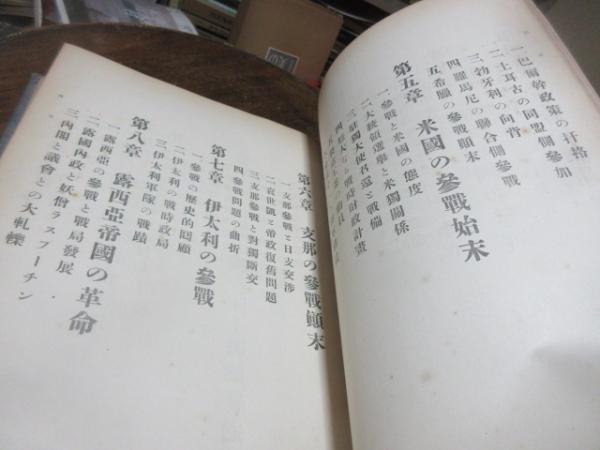 一巴爾幹政策の扞格
二土耳古の同盟側參加
三勃牙利の向背
四羅馬尼の聯合側參戰
五希臘の參戰顚末
第五章 米國の參戰始末
一參戰と米國の態度
二大統領選擧と米獨關係
三獨大使召還と戰備
第六章 支那の參戰顚末
一支那參戰と日支交渉
二袁世凱と帝政復舊問題
三支那參戰と對獨斷交
四參戰問題の曲折
第七章 伊太利の參戰
一參戰の歷史的回顧
二伊太利の戰時政局
三伊太利軍隊の戰蹟
第八章 露西亞帝國の革命
一露西亞の參戰と戰局發展
二露國秕政と妖僧ラスプーチン
三內閣と議會との大軋轢